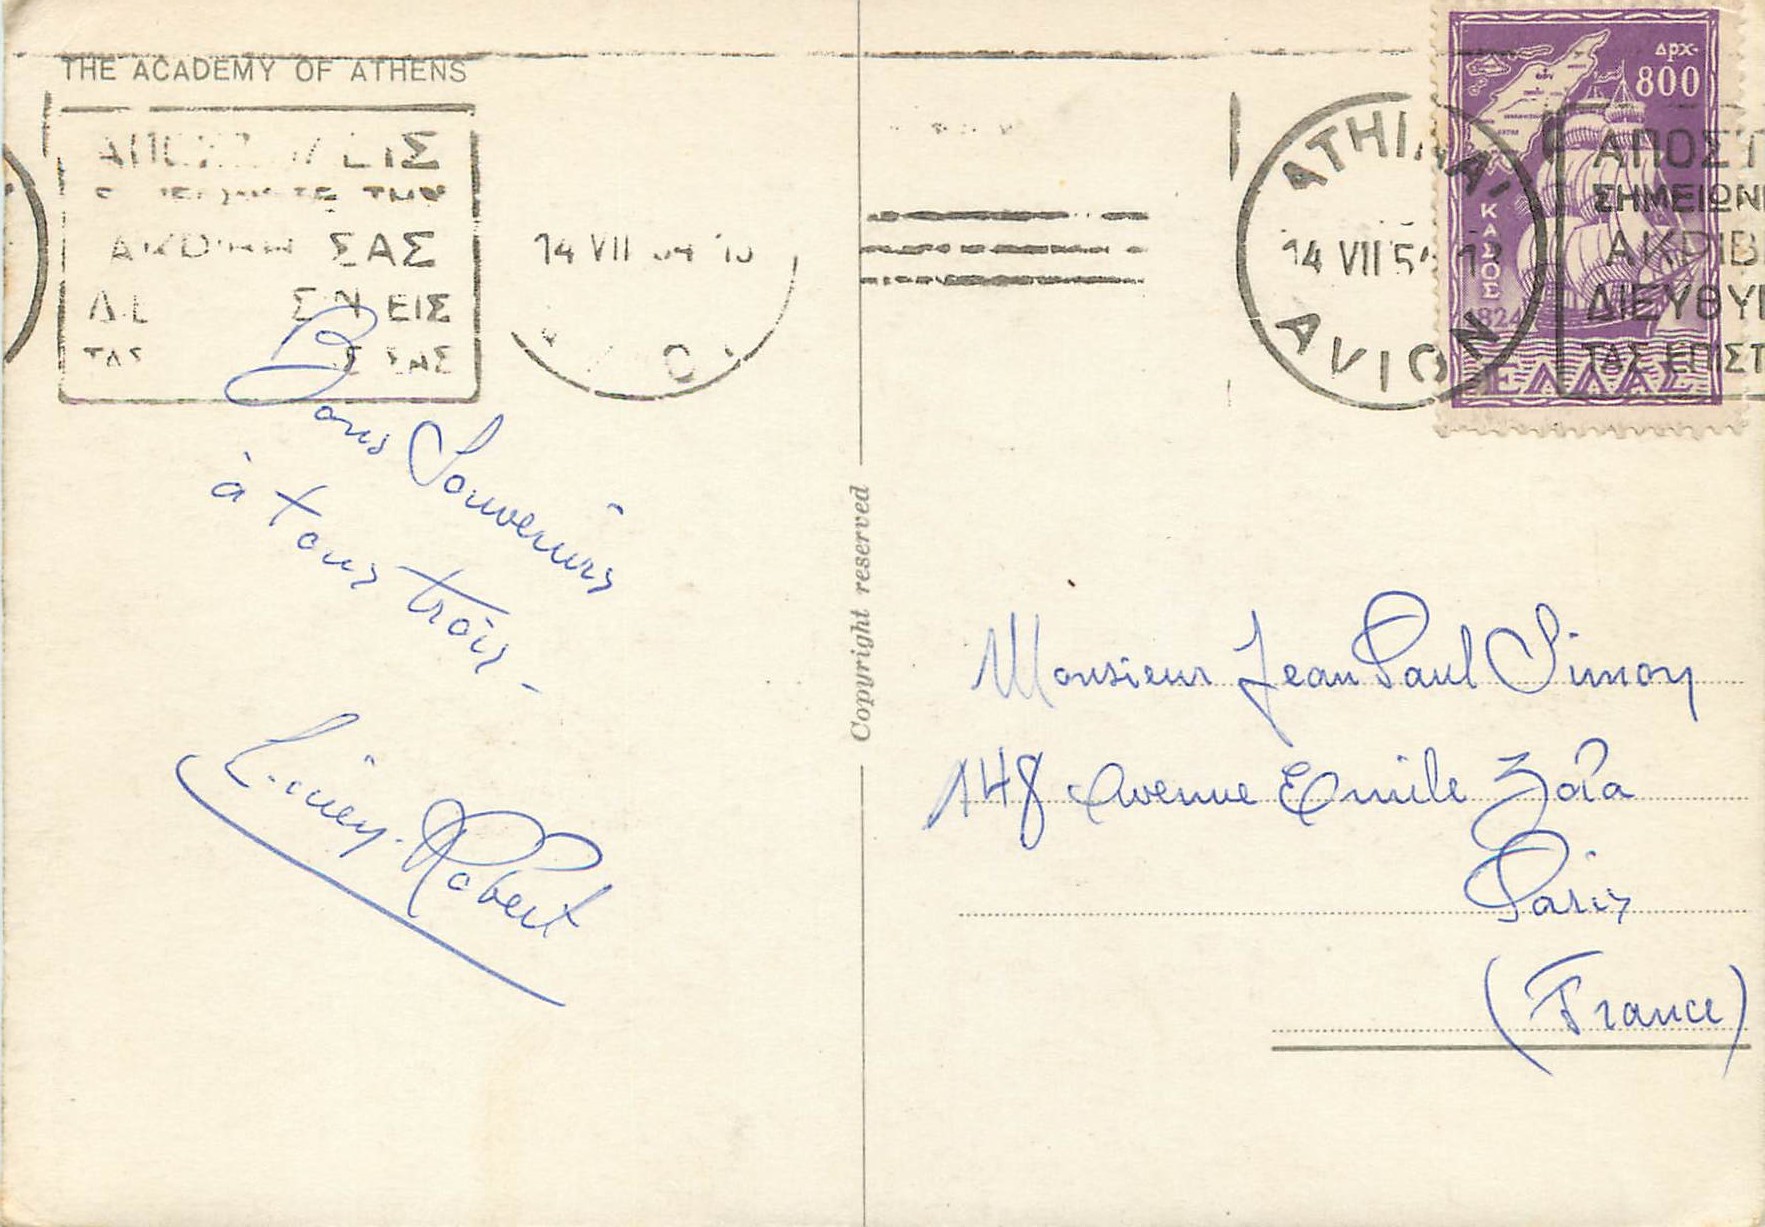 THE ACADEMY OF ATHENS
ΕΙΣ
ΤΩΝ
ΣΑΣ
ΕΙΣ
ΤΑΣ
14 VII 54
ATHINAI
14 VII 54
AVION
ΑΠΟΣΤ
ΣΗΜΕΙΩΝ
ΑΚΡΙΒ
ΔΙΕΥΘΥ
ΤΑΣ ΕΠΙΣΤ
ΔΡΧ-
800
ΚΑΣΟΣ
1824
ΕΛΛΑΣ
Bons Souvenirs
à tous trois -
Lucien Robert
Copyright reserved
Monsieur Jean Paul Simon
148 Avenue Emile Zola
Paris
(France)